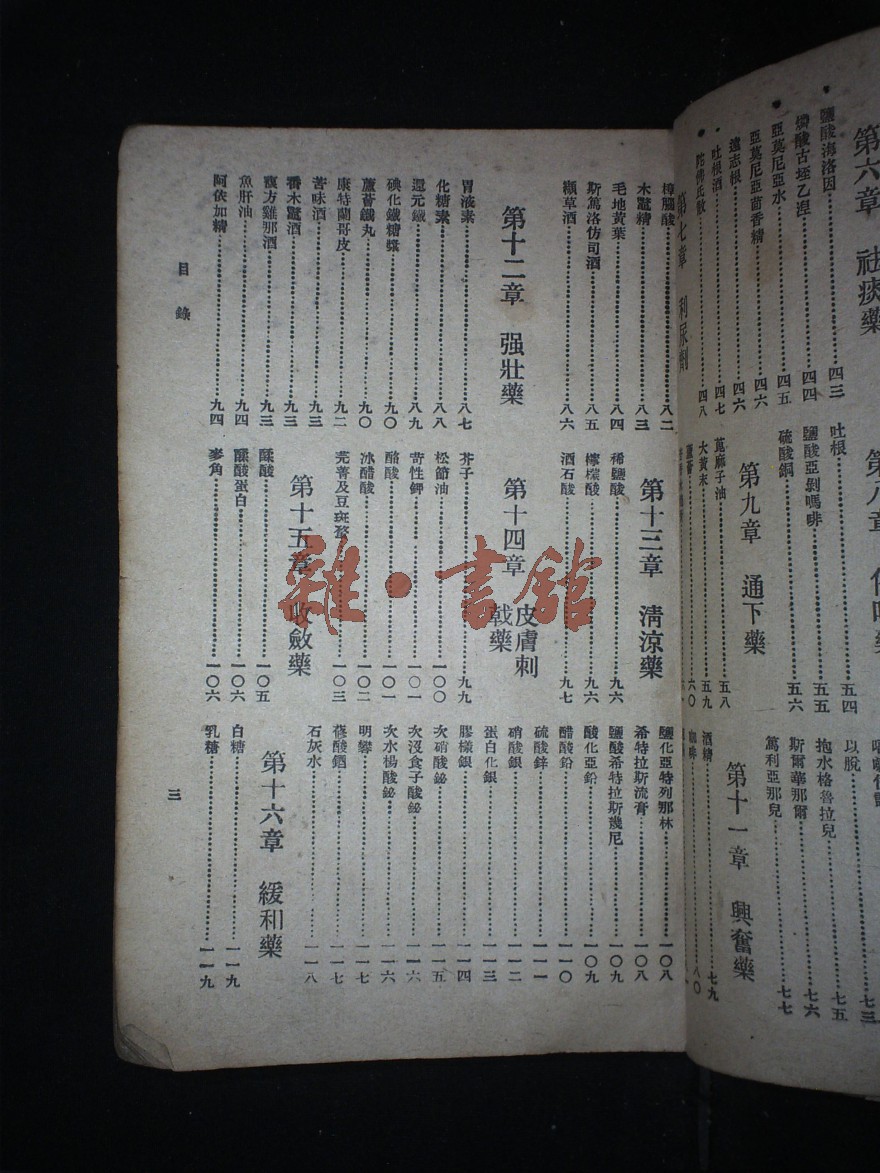 第六章　祛痰藥
鹽酸海洛因……四三
燐酸古垤乙湼……四四
亞莫尼亞水……四五
亞莫尼亞茴香精……四六
遠志根……四六
吐根酒……四七
陀佛氏散……四八
第七章　利尿劑
吐根……五四
鹽酸亞剝嗎啡……五五
硫酸銅……五六
第九章　通下藥
萆麻子油……五八
大黃末……五九
蘆薈……六〇
以脫……七五
抱水格魯拉兒……七六
斯爾華那爾……七六
篤利亞那兒……七七
第十一章　興奮藥
酒精……七九
咖啡……八〇
樟腦酸……八二
木鼈精……八三
毛地黃葉……八四
斯篤洛仿司酒……八五
纈草酒……八六
第十二章　强壯藥
胃液素……八七
化糖素……八八
還元鐵……八九
碘化鐵糖漿……九〇
蘆薈鐵丸……九〇
康特蘭哥皮……九二
苦味酒……九三
番木鼈酒……九三
複方雞那酒……九三
魚肝油……九四
阿依加精……九四
第十三章　淸涼藥
稀鹽酸……九六
檸檬酸……九六
酒石酸……九七
第十四章　皮膚刺戟藥
芥子……九九
松節油……一〇〇
苛性鉀……一〇一
醋酸……一〇一
冰醋酸……一〇二
芫菁及豆斑蝥……一〇三
第十五章　收斂藥
鞣酸……一〇五
鞣酸蛋白……一〇六
麥角……一〇六
鹽化亞特列那林……一〇八
希特拉斯流膏……一〇八
鹽酸希特拉斯幾尼……一〇九
酸化亞鉛……一〇九
醋酸鉛……一一〇
硫酸鋅……一一一
硝酸銀……一一二
蛋白化銀……一一三
膠樣銀……一一四
次硝酸鉍……一一五
次沒食子酸鉍……一一六
次水楊酸鉍……一一六
明礬……一一七
蓚酸鍶……一一七
石灰水……一一八
第十六章　緩和藥
白糖……一一九
乳糖……一一九
目錄
三
雜·書館